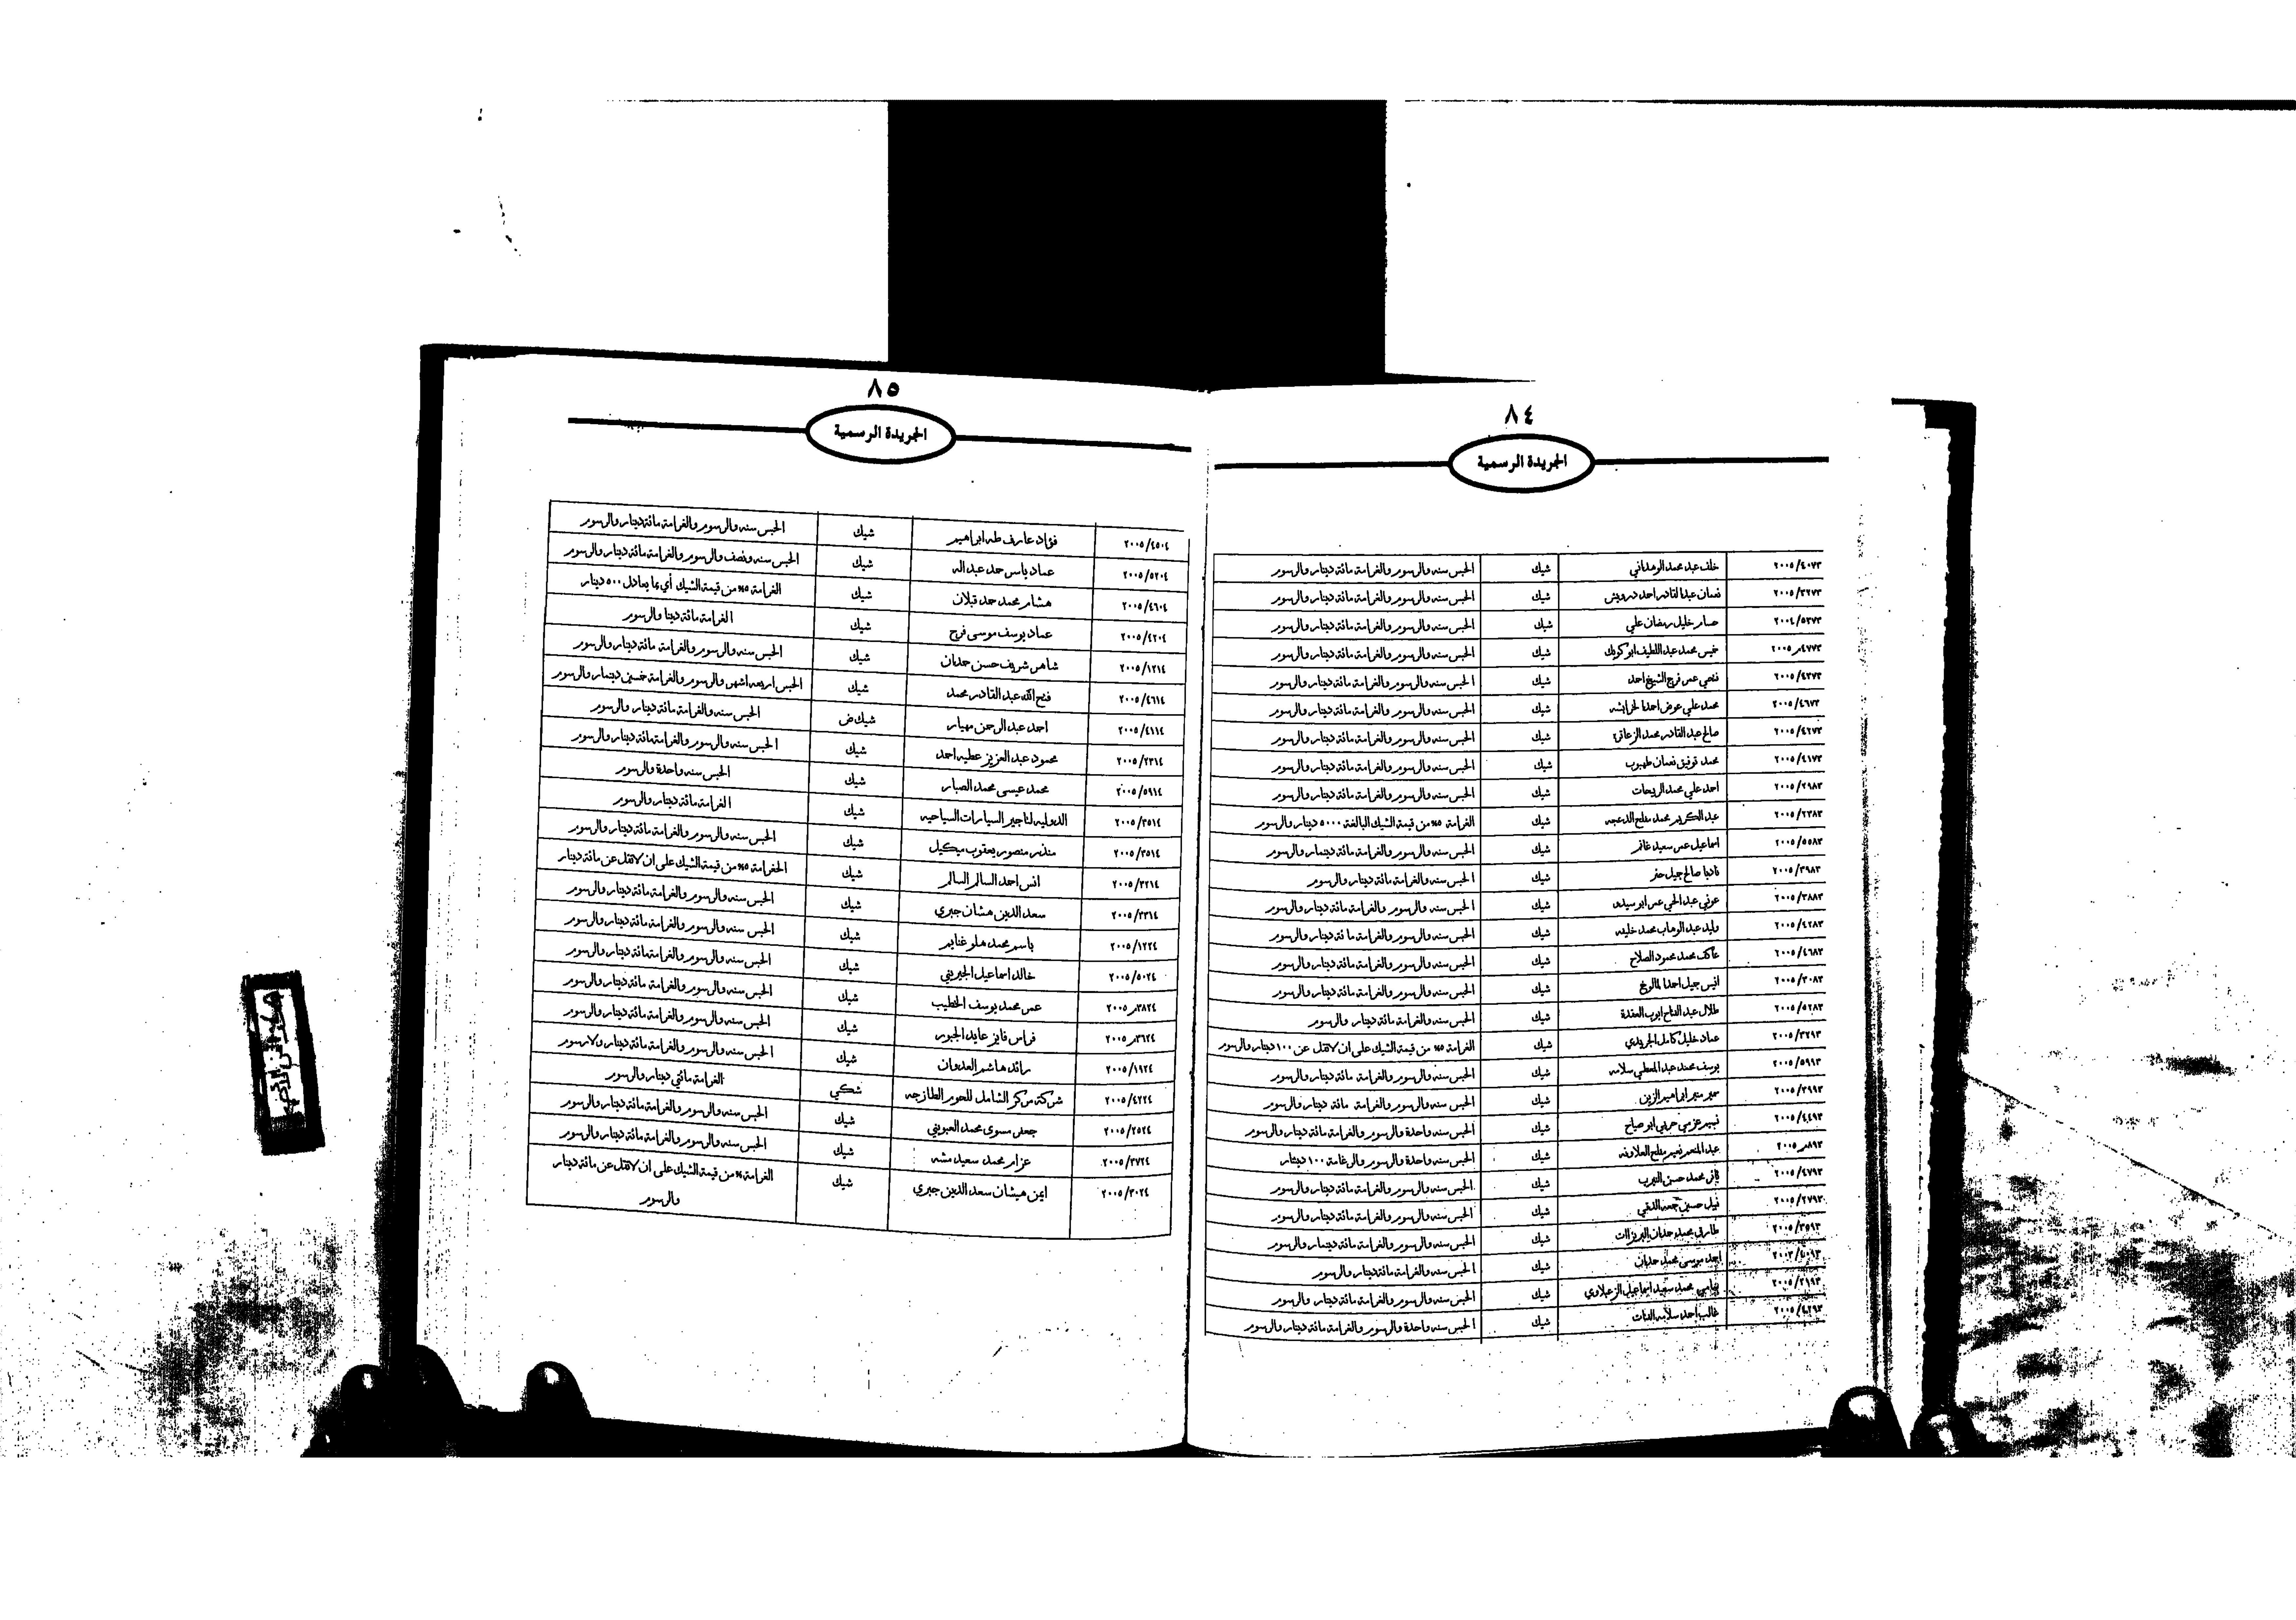 ٨٤
الجريدة الرسمية
٢٠٠٥/٤٠٧٣ خلف عبد محمد الوهداني شيك الحبس سنه والرسوم والغرامة مائة دينار والرسوم
٢٠٠٥/٣٦٧٣ نعمان عبد القادر احمد درويش شيك الحبس سنه والرسوم والغرامة مائة دينار والرسوم
٢٠٠٤/٥٣٧٣ حسام خليل رمضان علي شيك الحبس سنه والرسوم والغرامة مائة دينار والرسوم
٤٧٧٣ر٢٠٠٥ خميس محمد عبد اللطيف ابو كويك شيك الحبس سنه والرسوم والغرامة مائة دينار والرسوم
٢٠٠٥/٤٣٧٣ فتحي عمر فرج الشيخ احمد شيك الحبس سنه والرسوم والغرامة مائة دينار والرسوم
٢٠٠٥/٤٦٧٣ محمد علي عوض احمد الخرابشه شيك الحبس سنه والرسوم والغرامة مائة دينار والرسوم
٢٠٠٥/٤٢٧٣ صالح عبد القادر محمد شيك الحبس سنه والرسوم والغرامة مائة دينار والرسوم
٢٠٠٥/٤١٧٣ محمد توفيق نعمان طهبوب شيك الحبس سنه والرسوم والغرامة مائة دينار والرسوم
٢٠٠٥/٢٩٨٣ احمد علي محمد الربحات شيك الحبس سنه والرسوم والغرامة مائة دينار والرسوم
٢٠٠٥/٢٣٨٣ عبد الكريم محمد مفلح الدعجه شيك الغرامة ٥% من قيمة الشيك البالغة ٥٠٠٠ دينار والرسوم
٢٠٠٥/٥٥٨٣ اسماعيل عمر سعيد غانم شيك الحبس سنه والرسوم والغرامة مائة دينمار والرسوم
٢٠٠٥/٣٩٨٣ ناديا صالح جميل شيك الحبس سنه والغرامة مائة دينار والرسوم
٢٠٠٥/٣٨٨٣ عوني عبد الحي عمر ابو سيدو شيك الحبس سنه والرسوم والغرامة مائة دينار والرسوم
٢٠٠٥/٤٢٨٣ وليد عبد الوهاب محمد خليفه شيك الحبس سنه والرسوم والغرامة مائة دينار والرسوم
٢٠٠٥/٤٦٨٣ عاكف محمد محمود الصلاح شيك الحبس سنه والرسوم والغرامة مائة دينار والرسوم
٢٠٠٥/٣٠٨٣ انيس جميل احمد شيك الحبس سنه والرسوم والغرامة مائة دينار والرسوم
٢٠٠٥/٥٢٨٣ طلال عبد الفتاح ايوب العقدة شيك الحبس سنه والغرامة مائة دينار والرسوم
٢٠٠٥/٣٢٩٣ عماد خليل كامل الجريدي شيك الغرامة ٥% من قيمة الشيك على ان لا تقل عن ١٠٠ دينار والرسوم
٢٠٠٥/٥٩٩٣ يوسف محمد عبد المعطي سلامه شيك الحبس سنه والرسوم والغرامة مائة دينار والرسوم
٢٠٠٥/٣٩٩٣ سمير منير ابراهيم الزين شيك الحبس سنه والرسوم والغرامة مائة دينار والرسوم
٢٠٠٥/٤٤٩٣ ابو صباح شيك الحبس سنه واحدة والرسوم والغرامة مائة دينار والرسوم
٨٩٣ر٢٠٠٥ عبد المنعم نمير مفلح العلاونه شيك الحبس سنه واحدة والرسوم والرغامة ١٠٠ دينار
٢٠٠٥/٤٧٩٣ محمد حسن شيك الحبس سنه والرسوم والغرامة مائة دينار والرسوم
٢٠٠٥/٢٧٩٣ نبيل حسين جمعه شيك الحبس سنه والرسوم والغرامة مائة دينار والرسوم
٢٠٠٥/٣٥٩٣ طارق محمد حمدان شيك الحبس سنه والرسوم والغرامة مائة دينمار والرسوم
احمد موسى محمد حمدان شيك الحبس سنه والغرامة مائة دينار والرسوم
٢٠٠٥/٢١٩٣ محمد سعيد اسماعيل الزعبلاوي شيك الحبس سنه والرسوم والغرامة مائة دينار والرسوم
٢٠٠٥/٤٢٩٣ غالب احمد سلامه شيك الحبس سنه واحدة والرسوم والغرامة مائة دينار والرسوم
٨٥
الجريدة الرسمية
٢٠٠٥/٤٥٠٤ فؤاد عارف طه ابراهيم شيك الحبس سنه والرسوم والغرامة مائة دينار والرسوم
٢٠٠٥/٥٢٠٤ عماد ياس حمد عبد اله شيك الحبس سنه ونصف والرسوم والغرامة مائة دينار والرسوم
٢٠٠٥/٤٦٠٤ هشام محمد حمد قبلان شيك الغرامة ٥% من قيمة الشيك أي بما يعادل ٥٠٠ دينار
٢٠٠٥/٤٢٠٤ عماد يوسف موسى فرج شيك الغرامة مائة دينا والرسوم
٢٠٠٥/١٢١٤ شاهر شريف حسن حمدان شيك الحبس سنه والرسوم والغرامة مائة دينار والرسوم
٢٠٠٥/٤٦١٤ فتح الله عبد القادر محمد شيك الحبس اربعه اشهر والرسوم والغرامة خمسين دينمار والرسوم
٢٠٠٥/٤١١٤ احمد عبد الرحمن مهيار شيك ض الحبس سنه والغرامة مائة دينار والرسوم
٢٠٠٥/٢٣١٤ محمود عبد العزيز عطيه احمد شيك الحبس سنه والرسوم والغرامة مائة دينار والرسوم
٢٠٠٥/٥٩١٤ محمد عيسى محمد الصبار شيك الحبس سنه واحدة والرسوم
٢٠٠٥/٣٥١٤ الدوليه لتاجير السيارات السياحيه شيك الغرامة مائة دينار والرسوم
٢٠٠٥/٣٥١٤ منذر منصور يعقوب ميكيل شيك الحبس سنه والرسوم والغرامة مائة دينار والرسوم
٢٠٠٥/٣٢١٤ انس احمد السالم السالم شيك الخغرامة ٥% من قيمة الشيك على ان لا تقل عن مائة دينار
٢٠٠٥/٣٣١٤ سعد الدين هشان جبري شيك الحبس سنه والرسوم والغرامة مائة دينار والرسوم
٢٠٠٥/١٢٢٤ باسم محمد هلو غنايم شيك الحبس سنه والرسوم والغرامة مائة دينار والرسوم
٢٠٠٥/٥٠٢٤ خالد اسماعيل الجبريني شيك الحبس سنه والرسوم والغرامة مائة دينار والرسوم
٣٨٢٤ر٢٠٠٥ عمر محمد يوسف الخطيب شيك الحبس سنه والرسوم والغرامة مائة دينار والرسوم
٣٦٢٤ر٢٠٠٥ فراس فايز عايد الجبور شيك الحبس سنه والرسوم والغرامة مائة دينار والرسوم
٢٠٠٥/١٩٢٤ رائد هاشم العدوان شيك الحبس سنه والرسوم والغرامة مائة دينار ولارسوم
٢٠٠٥/٤٢٢٤ شركة مركز الشامل للحوم الطازجه شكي الغرامة مائتي دينار والرسوم
٢٠٠٥/٢٥٢٤ جعفر مسوى محمد العبويني شيك الحبس سنه والرسوم والغرامة مائة دينار والرسوم
٢٠٠٥/٣٧٢٤ عزام محمد سعيد مشه شيك الحبس سنه والرسوم والغرامة مائة دينار والرسوم
٢٠٠٥/٣٠٢٤ ايمن هيشان سعد الدين جبري شيك الغرامة ٥% من قيمة الشيك على ان لا تقل عن مائة دينار
والرسوم